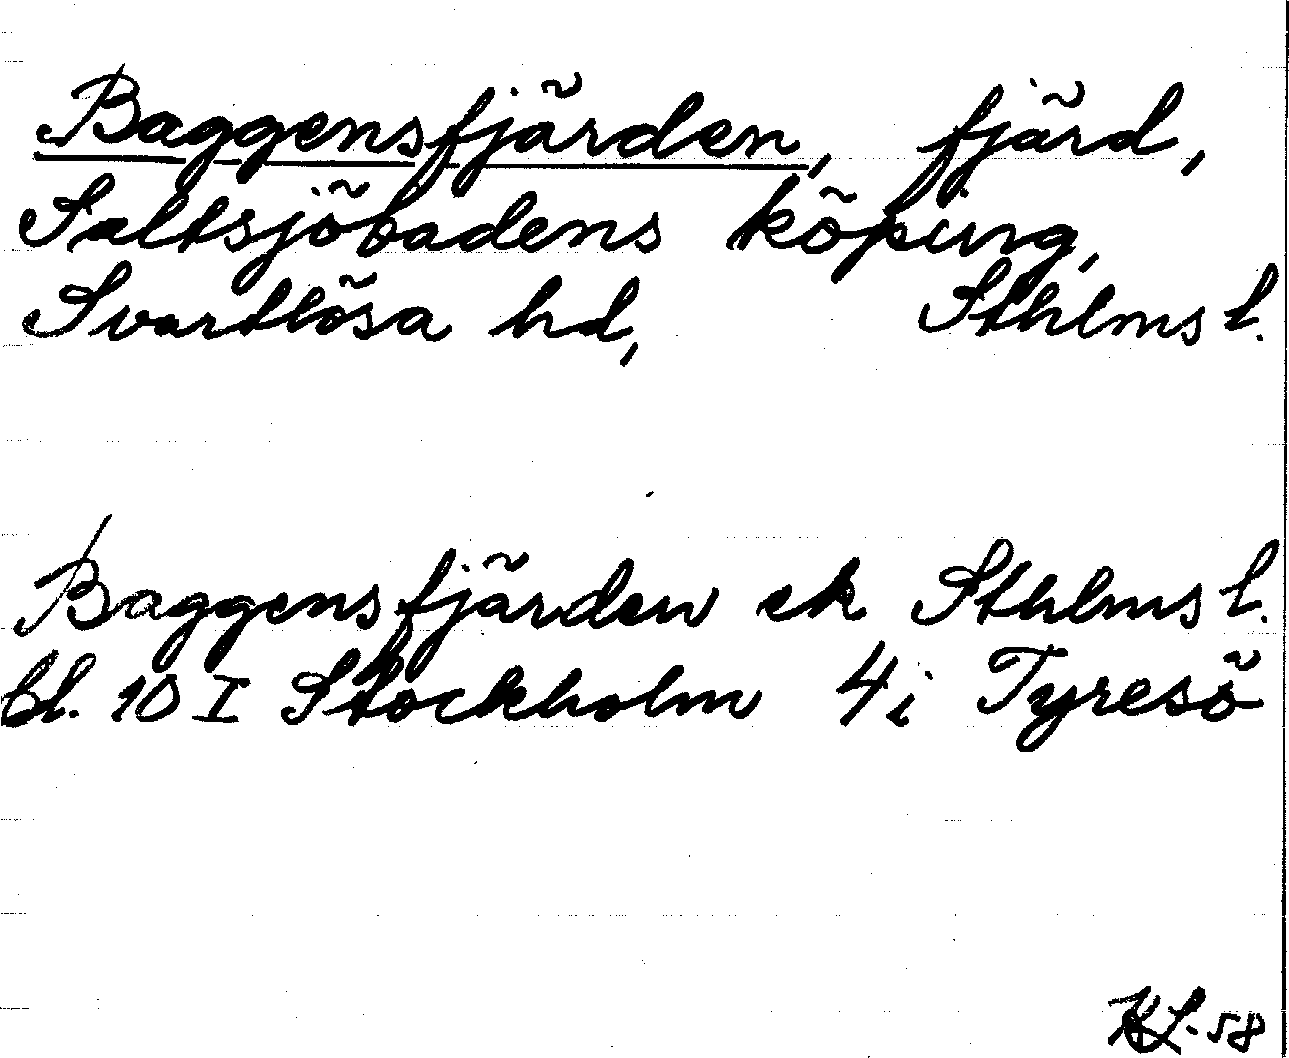 Baggensfjärden, fjärd,
Saltsjöbadens köping,
Svartlösa hd, Sthlms l.
Baggensfjärden ek Sthlms l.
bl. 10 I Stockholm 4 i Tyresö
KL-58